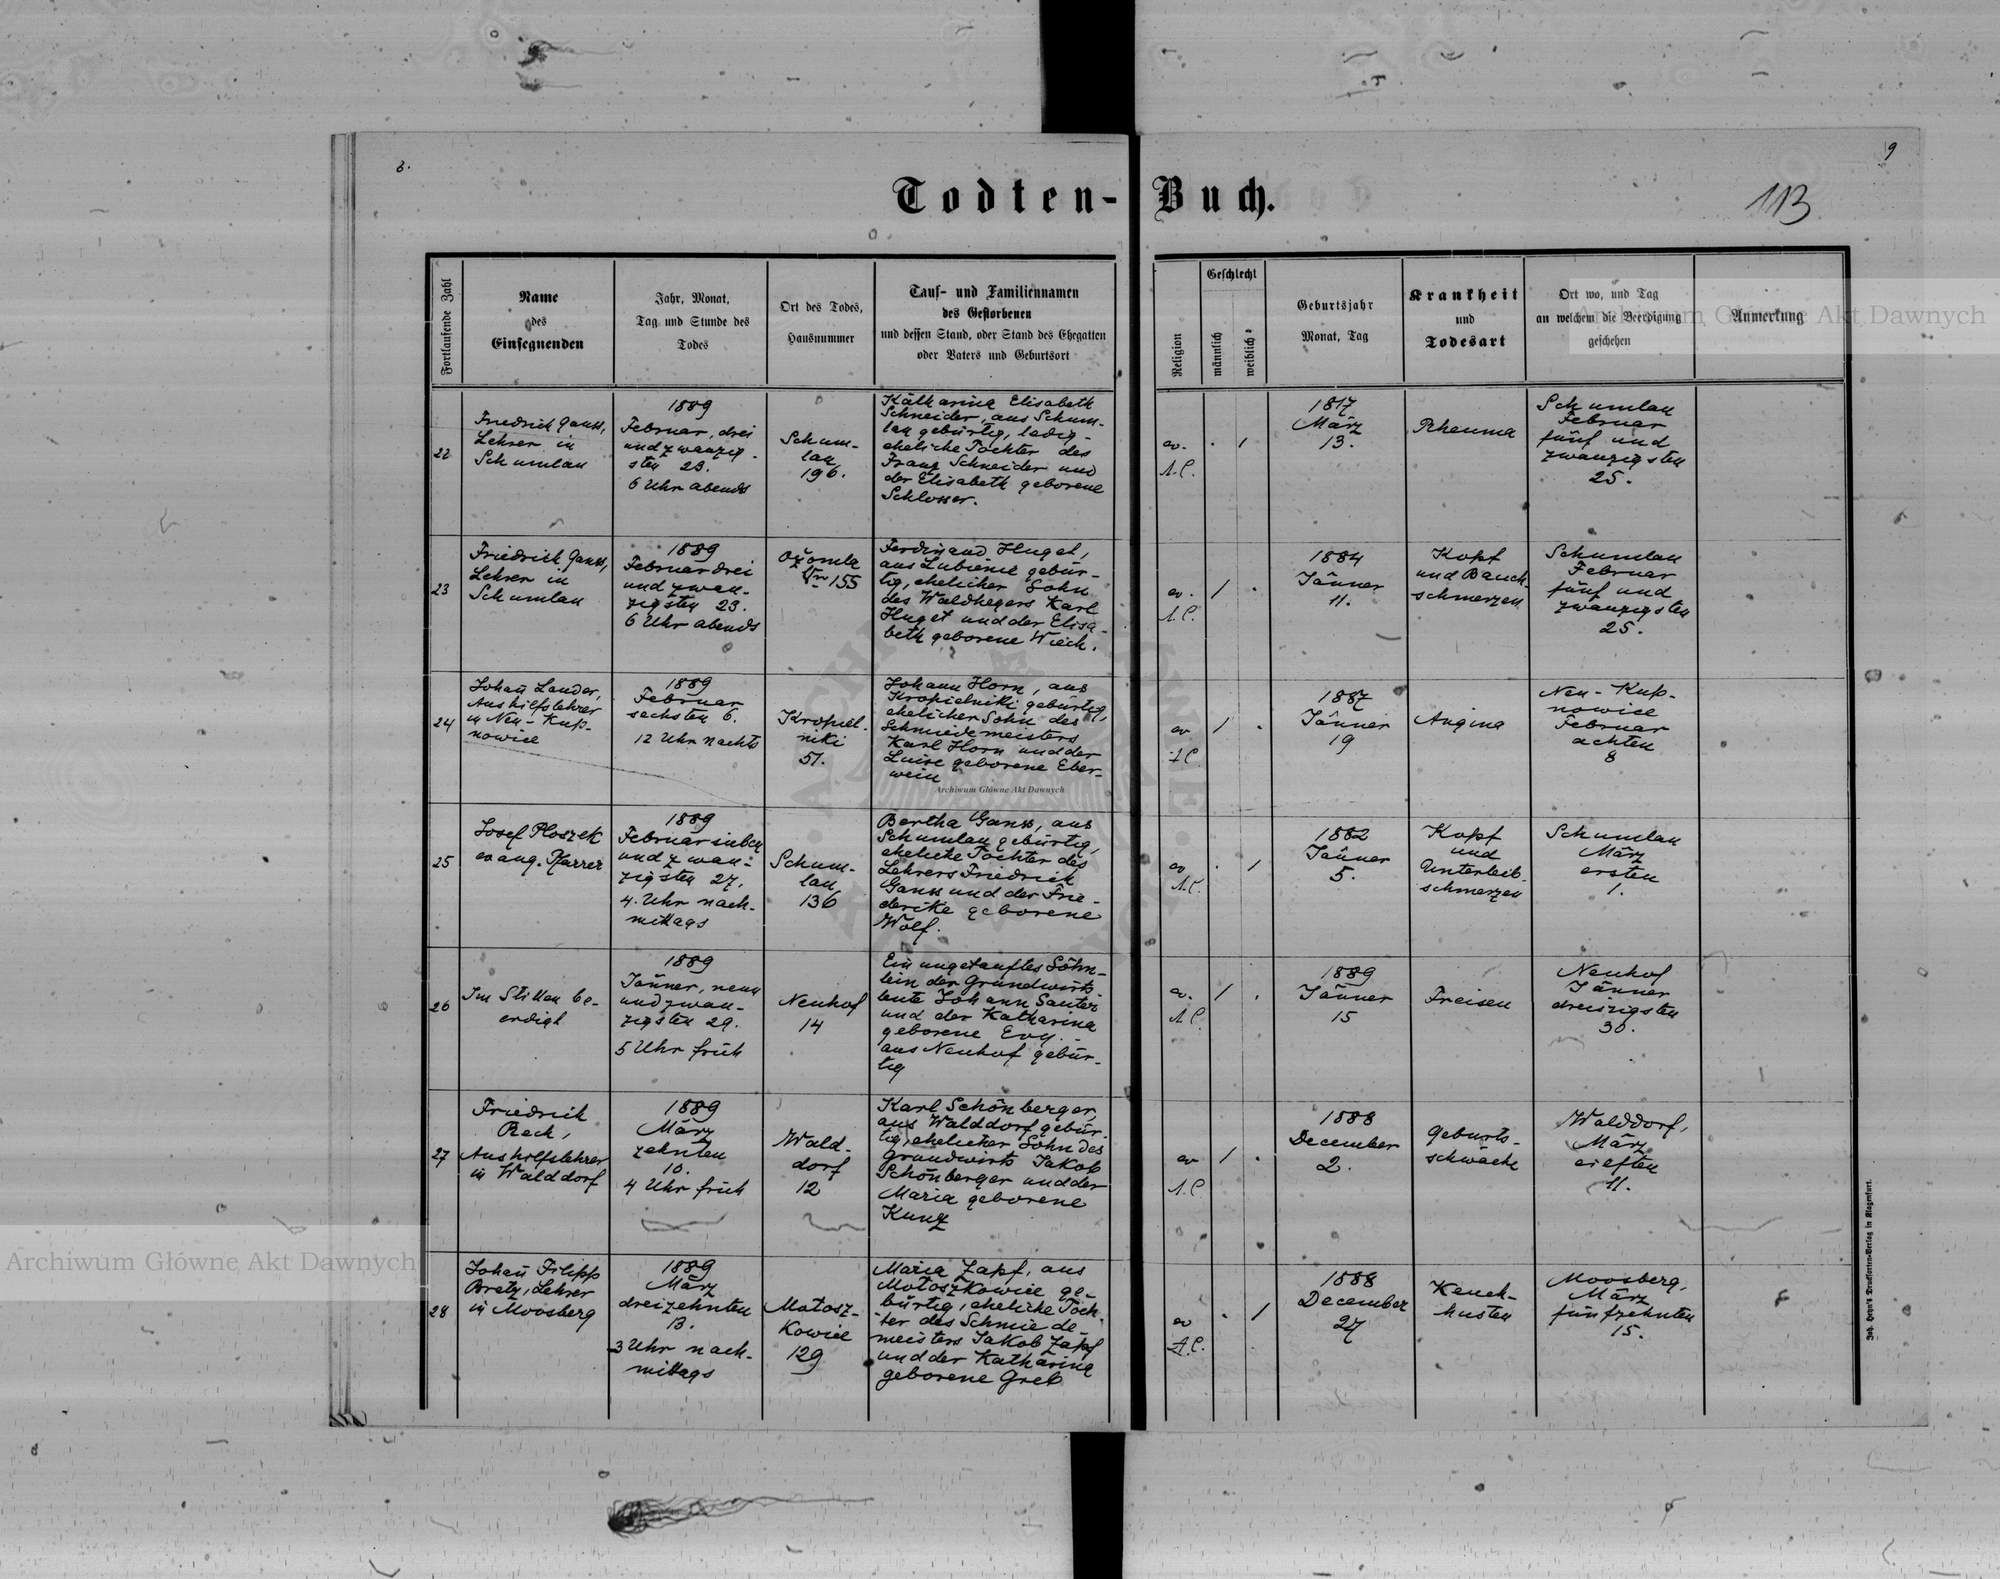 8.
9
Todten-Buch.
113
Fortlaufende Zahl
Name
des
Einsegnenden
Jahr, Monat,
Tag und Stunde des
Todes
Ort des Todes,
Hausnummer
Tauf- und Familiennamen
des Gestorbenen
und dessen Stand, oder Stand des Ehegatten
oder Vaters und Geburtsort
Religion
Geschlecht
männlich
weiblich
Geburtsjahr
Monat, Tag
Krankheit
und
Todesart
Ort wo, und Tag
an welchem die Beerdigung
geschehen
Anmerkung
22
Friedrich Ganss,
Lehrer in
Schumlau
1889
Februar, drei
und zwanzig-
sten 23.
6 Uhr abends
Schum-
lau
196.
Katharina Elisabeth
Schneider, aus Schum-
lau gebürtig, ledig-
eheliche Tochter des
Franz Schneider und
der Elisabeth geborene
Schlosser.
ev.
A.C.
. 1
1817
März
13.
Rheuma
Schumlau
Februar
fünf und
zwanzigsten
25.
23
Friedrich Ganss,
Lehrer in
Schumlau
1889
Februar drei
und zwan-
zigsten 23.
6 Uhr abends
Ożomla
Nr 155
Ferdinand Huget,
aus Lubienie gebür-
tig, ehelicher Sohn
des Waldhegers Karl
Huget und der Elisa-
beth geborene Wiech.
ev.
A.C.
1 .
1884
Jänner
11.
Kopf
und Bauch-
schmerzen
Schumlau
Februar
fünf und
zwanzigsten
25.
24
Johañ Lander,
Aushilfslehrer
in Neu-Kup-
nowice
1889
Februar
sechsten 6.
12 Uhr nachts
Kropiel-
niki
51.
Johann Horn, aus
Kropielniki gebürtig,
ehelicher Sohn des
Schmiedemeisters
Karl Horn und der
Luise geborene Eber-
wein
ev
A.C
1 .
1887
Jänner
19
Angina
Neu-Kup-
nowice
Februar
achten
8
25
Josef Ploszek
evang. Pfarrer
1889
Februar sieben
und zwan-
zigsten 27.
4. Uhr nach-
mittags
Schum-
lau
136
Bertha Ganss, aus
Schumlau gebürtig,
eheliche Tochter des
Lehrers Friedrich
Ganss und der Frie-
derike geborene
Wolf.
ev
A.C.
. 1
1882
Jänner
5.
Kopf
und
Unterleib-
schmerzen
Schumlau
März
ersten
1.
26
Im Stillen be-
erdigt
1889
Jänner, neun
und zwan-
zigsten 29.
5 Uhr früh
Neuhof
14
Ein ungetauftes Söhn-
lein der Grundwirts-
leute Johann Sauter
und der Katharina
geborene Evy.
aus Neuhof gebür-
tig
ev.
A.C.
1 .
1889
Jänner
15
Freisen
Neuhof
Jänner
dreiszigsten
30.
27
Friedrich
Rech,
Aushilfslehrer
in Walddorf
1889
März
zehnten
10.
4 Uhr früh
Wald-
dorf
12
Karl Schönberger,
aus Walddorf gebür-
tig, ehelicher Sohn des
Grundwirts Jakob
Schönberger und der
Maria geborene
Kunz
ev
A.C.
1 .
1888
December
2.
Geburts-
schwäche
Walddorf,
März
eilften
11.
28
Johañ Filipp
Bretz, Lehrer
in Moosberg
1889
März
dreizehnten
13.
3 Uhr nach-
mittags
Matosz-
kowice
129
Maria Zapf, aus
Matoszkowice ge-
bürtig, eheliche Toch-
ter des Schmiede-
meisters Jakob Zapf
und der Katharina
geborene Greb
ev
A.C.
. 1
1888
December
27
Keuch-
husten
Moosberg,
März
fünfzehnten
15.
Joh. Heyn's Drucksorten-Verlag in Klagenfurt.
Archiwum Główne Akt Dawnych
Archiwum Główne Akt Dawnych
Archiwum Główne Akt Dawnych